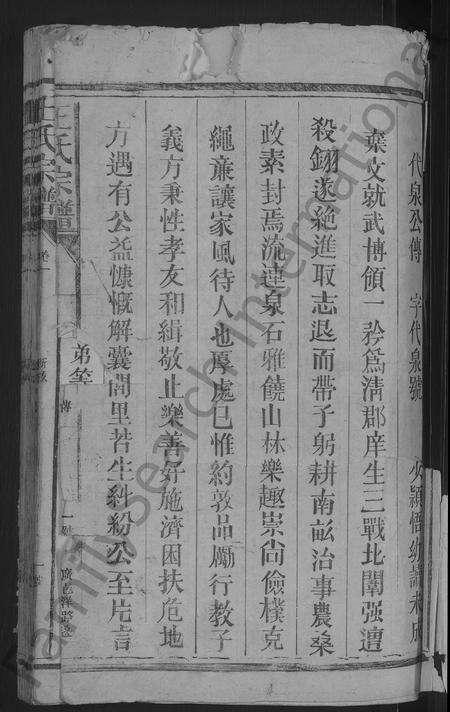 代泉公傳　字代泉號　少穎悟幼讀未成
棄文就武博領一衿為清郡庠生三戰北闈强遭
殺翎遂絶進取志退而帶子躬耕南畝治事農桑
政素封焉流連泉石雅饒山林樂趣崇尚儉樸克
繩廉讓家風待人也厚處己惟約敦品勵行教子
義方秉性孝友和緝敬止樂善好施濟困扶危地
方遇有公益慷慨解囊閭里若生糾紛公至片言
王氏宗譜
卷一
傳
FamilySearch International